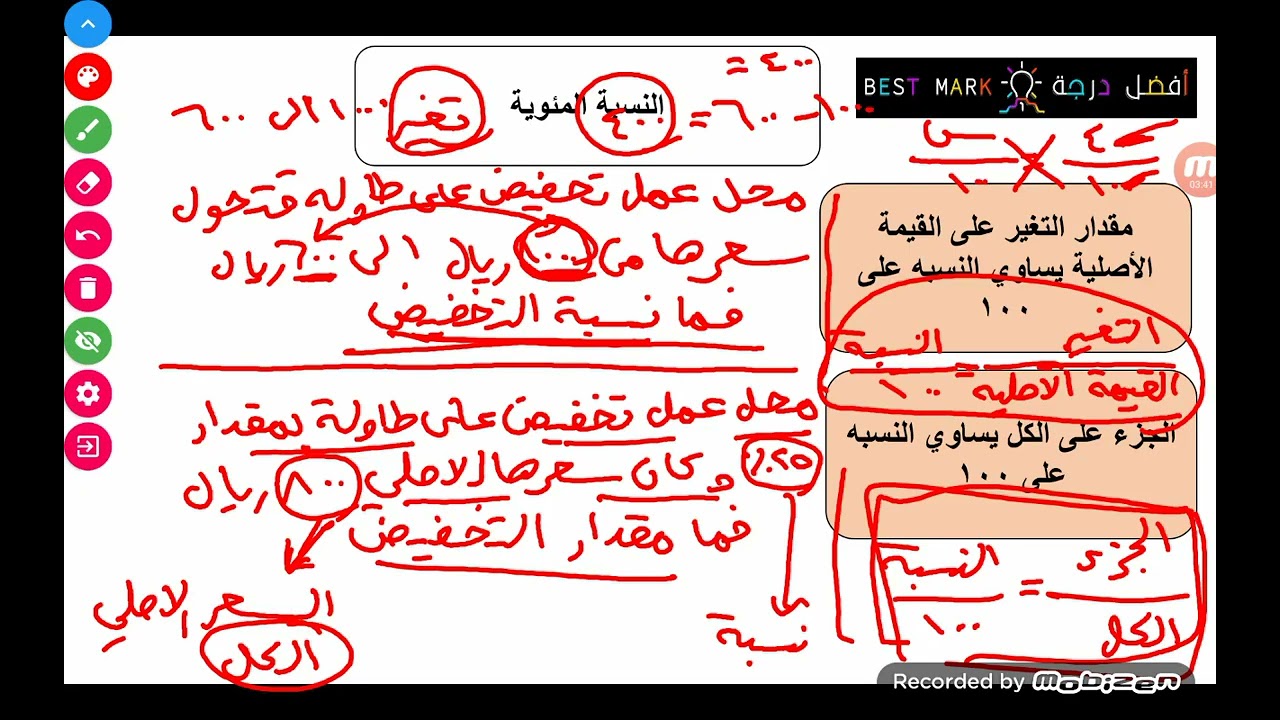 = ٤٠٠
النسبة المئوية
١٠٠٠ - ٦٠٠ = ٤٠٠
تغير ١٠٠٠ الى ٦٠٠
BEST MARK أفضل درجة
محل عمل تخفيض على طاولة فتحول
سعرها من ١٠٠٠ ريال الى ٦٠٠ ريال
فما نسبة التخفيض
محل عمل تخفيض على طاولة بمقدار
٢٥٪ وكان سعرها الاصلي ٨٠٠ ريال
فما مقدار التخفيض
نسبة
السعر الاصلي
الكل
03:41
مقدار التغير على القيمة
الأصلية يساوي النسبه على
١٠٠
التغير
القيمة الاصلية
=
النسبة
١٠٠
الجزء على الكل يساوي النسبه
على ١٠٠
الجزء
الكل
=
النسبة
١٠٠
Recorded by mobizen